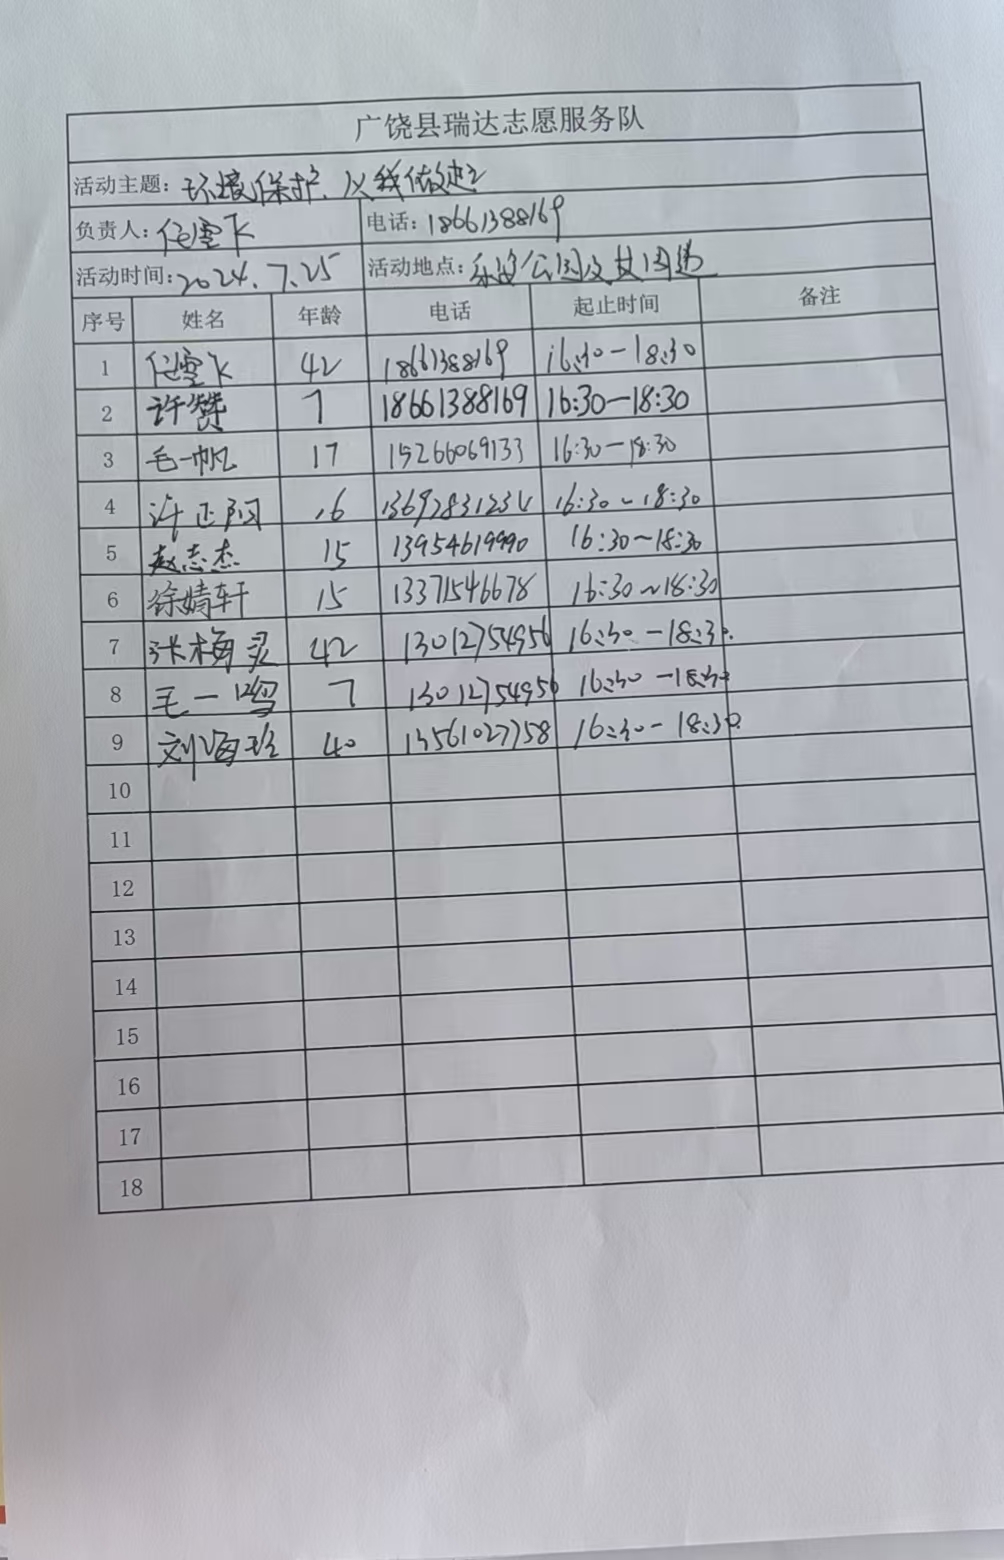 广饶县瑞达志愿服务队
活动主题: 环境保护、从我做起
负责人: 任雪飞 电话: 18661388169
活动时间: 2024.7.25 活动地点: 乐安公园及其周边
序号 姓名 年龄 电话 起止时间 备注
1 任雪飞 42 18661388169 16:30-18:30
2 许赞 7 18661388169 16:30-18:30
3 毛一帆 17 15266069133 16:30-18:30
4 许正阳 16 13692831234 16:30~18:30
5 赵志杰 15 13954619990 16:30-18:30
6 徐婧轩 15 13371546678 16:30~18:30
7 张梅灵 42 13012754956 16:30-18:30.
8 毛一鸣 7 13012754956 16:30-18:30
9 刘海玲 40 13561027758 16:30-18:30
10
11
12
13
14
15
16
17
18